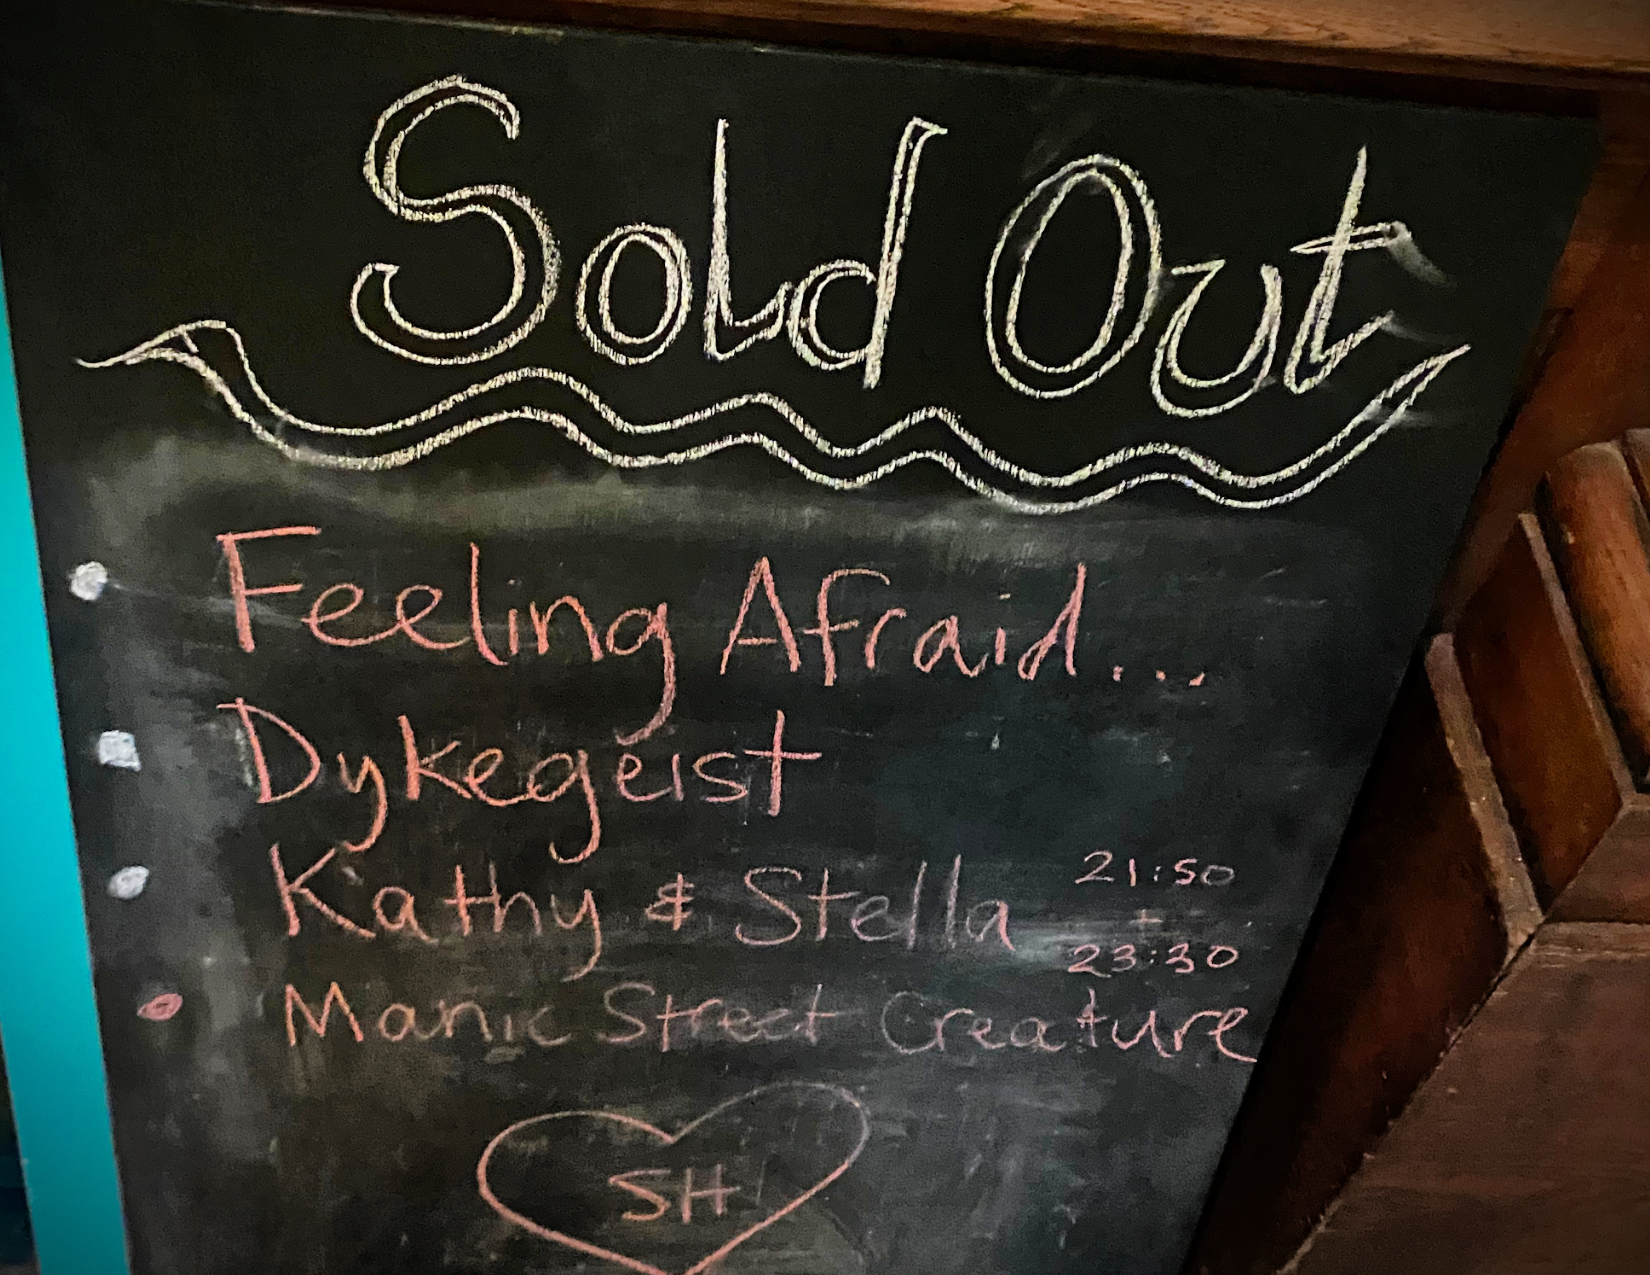 Sold Out
Feeling Afraid...
Dykegeist
Kathy & Stella 21:50
+
23:30
Manic Street Creature
SH